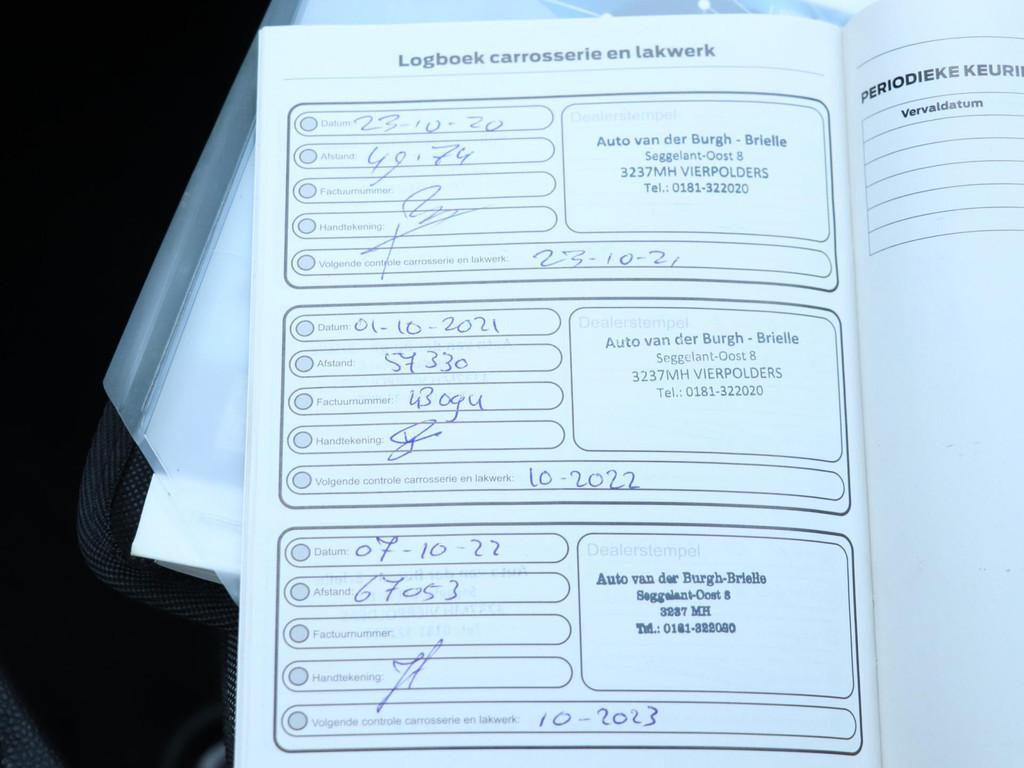 Logboek carrosserie en lakwerk
Datum: 23-10-20
Afstand: 49.74
Factuurnummer:
Handtekening:
Volgende controle carrosserie en lakwerk: 23-10-21
Dealerstempel
Auto van der Burgh - Brielle
Seggelant-Oost 8
3237MH VIERPOLDERS
Tel.: 0181-322020
Datum: 01-10-2021
Afstand: 57330
Factuurnummer:
Handtekening:
Volgende controle carrosserie en lakwerk: 10-2022
Dealerstempel
Auto van der Burgh - Brielle
Seggelant-Oost 8
3237MH VIERPOLDERS
Tel.: 0181-322020
Datum: 07-10-22
Afstand: 67053
Factuurnummer:
Handtekening:
Volgende controle carrosserie en lakwerk: 10-2023
Dealerstempel
Auto van der Burgh-Brielle
Seggelant-Oost 8
3237 MH
Tel.: 0181-322020
PERIODIEKE KEURI
Vervaldatum